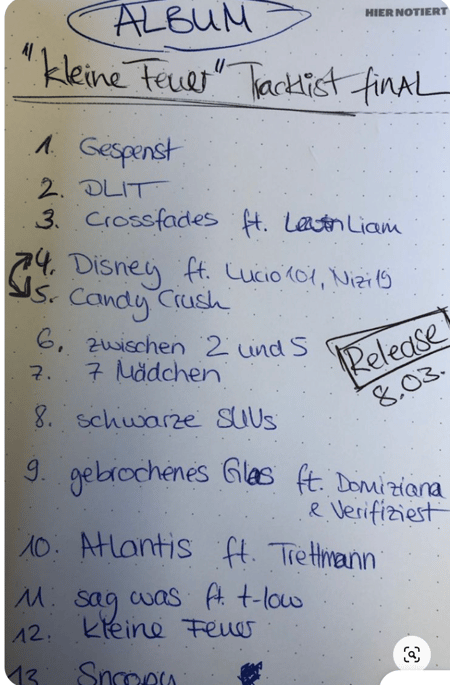 ALBUM
HIER NOTIERT
"kleine Feuer" Tracklist finAL
1. Gespenst
2. DLIT
3. Crossfades ft. Liam
4. Disney ft. Lucio101, Nizi19
5. Candy Crush
6. zwischen 2 und 5
7. 7 Mädchen
Release
8.03.
8. schwarze SUVs
9. gebrochenes Glas ft. Domiziana
& Verifiziert
10. Atlantis ft. Trettmann
11. sag was ft. t-low
12. kleine Feuer
13 Snoopy